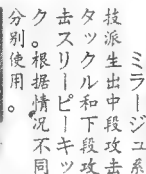 ミラージュ系
技派生出中段攻击
タックル和下段攻
击スリーピーキッ
ク。根据情况不同
分别使用。